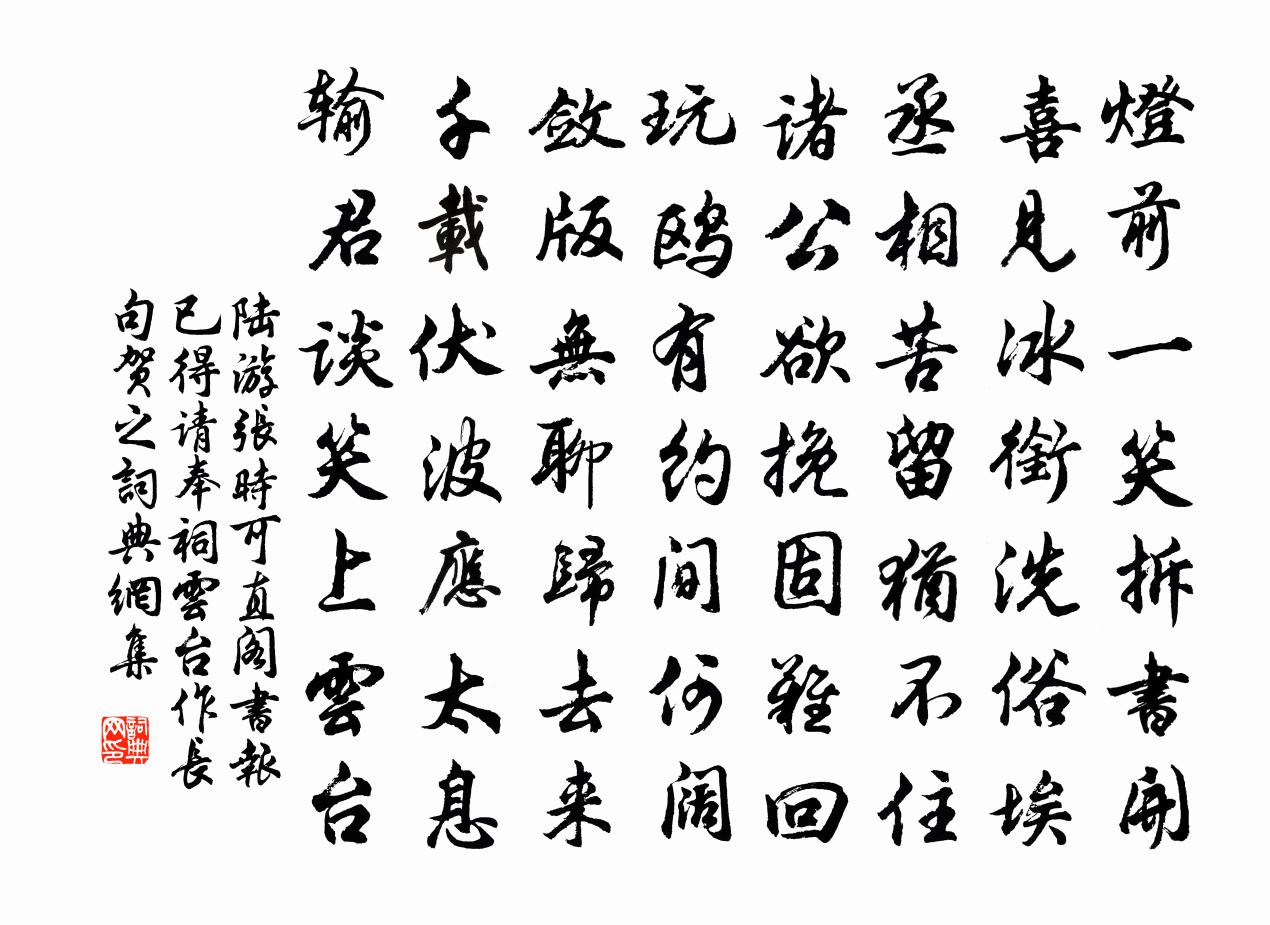 燈前一笑拆書開
喜見冰銜洗俗埃
丞相苦留猶不住
诸公欲挽固難回
玩鸥有約间何阔
斂版無聊歸去来
千載伏波應太息
输君谈笑上雲台
陆游張時可直阁書報
已得请奉祠雲台作長
句贺之詞典網集
詞典网印